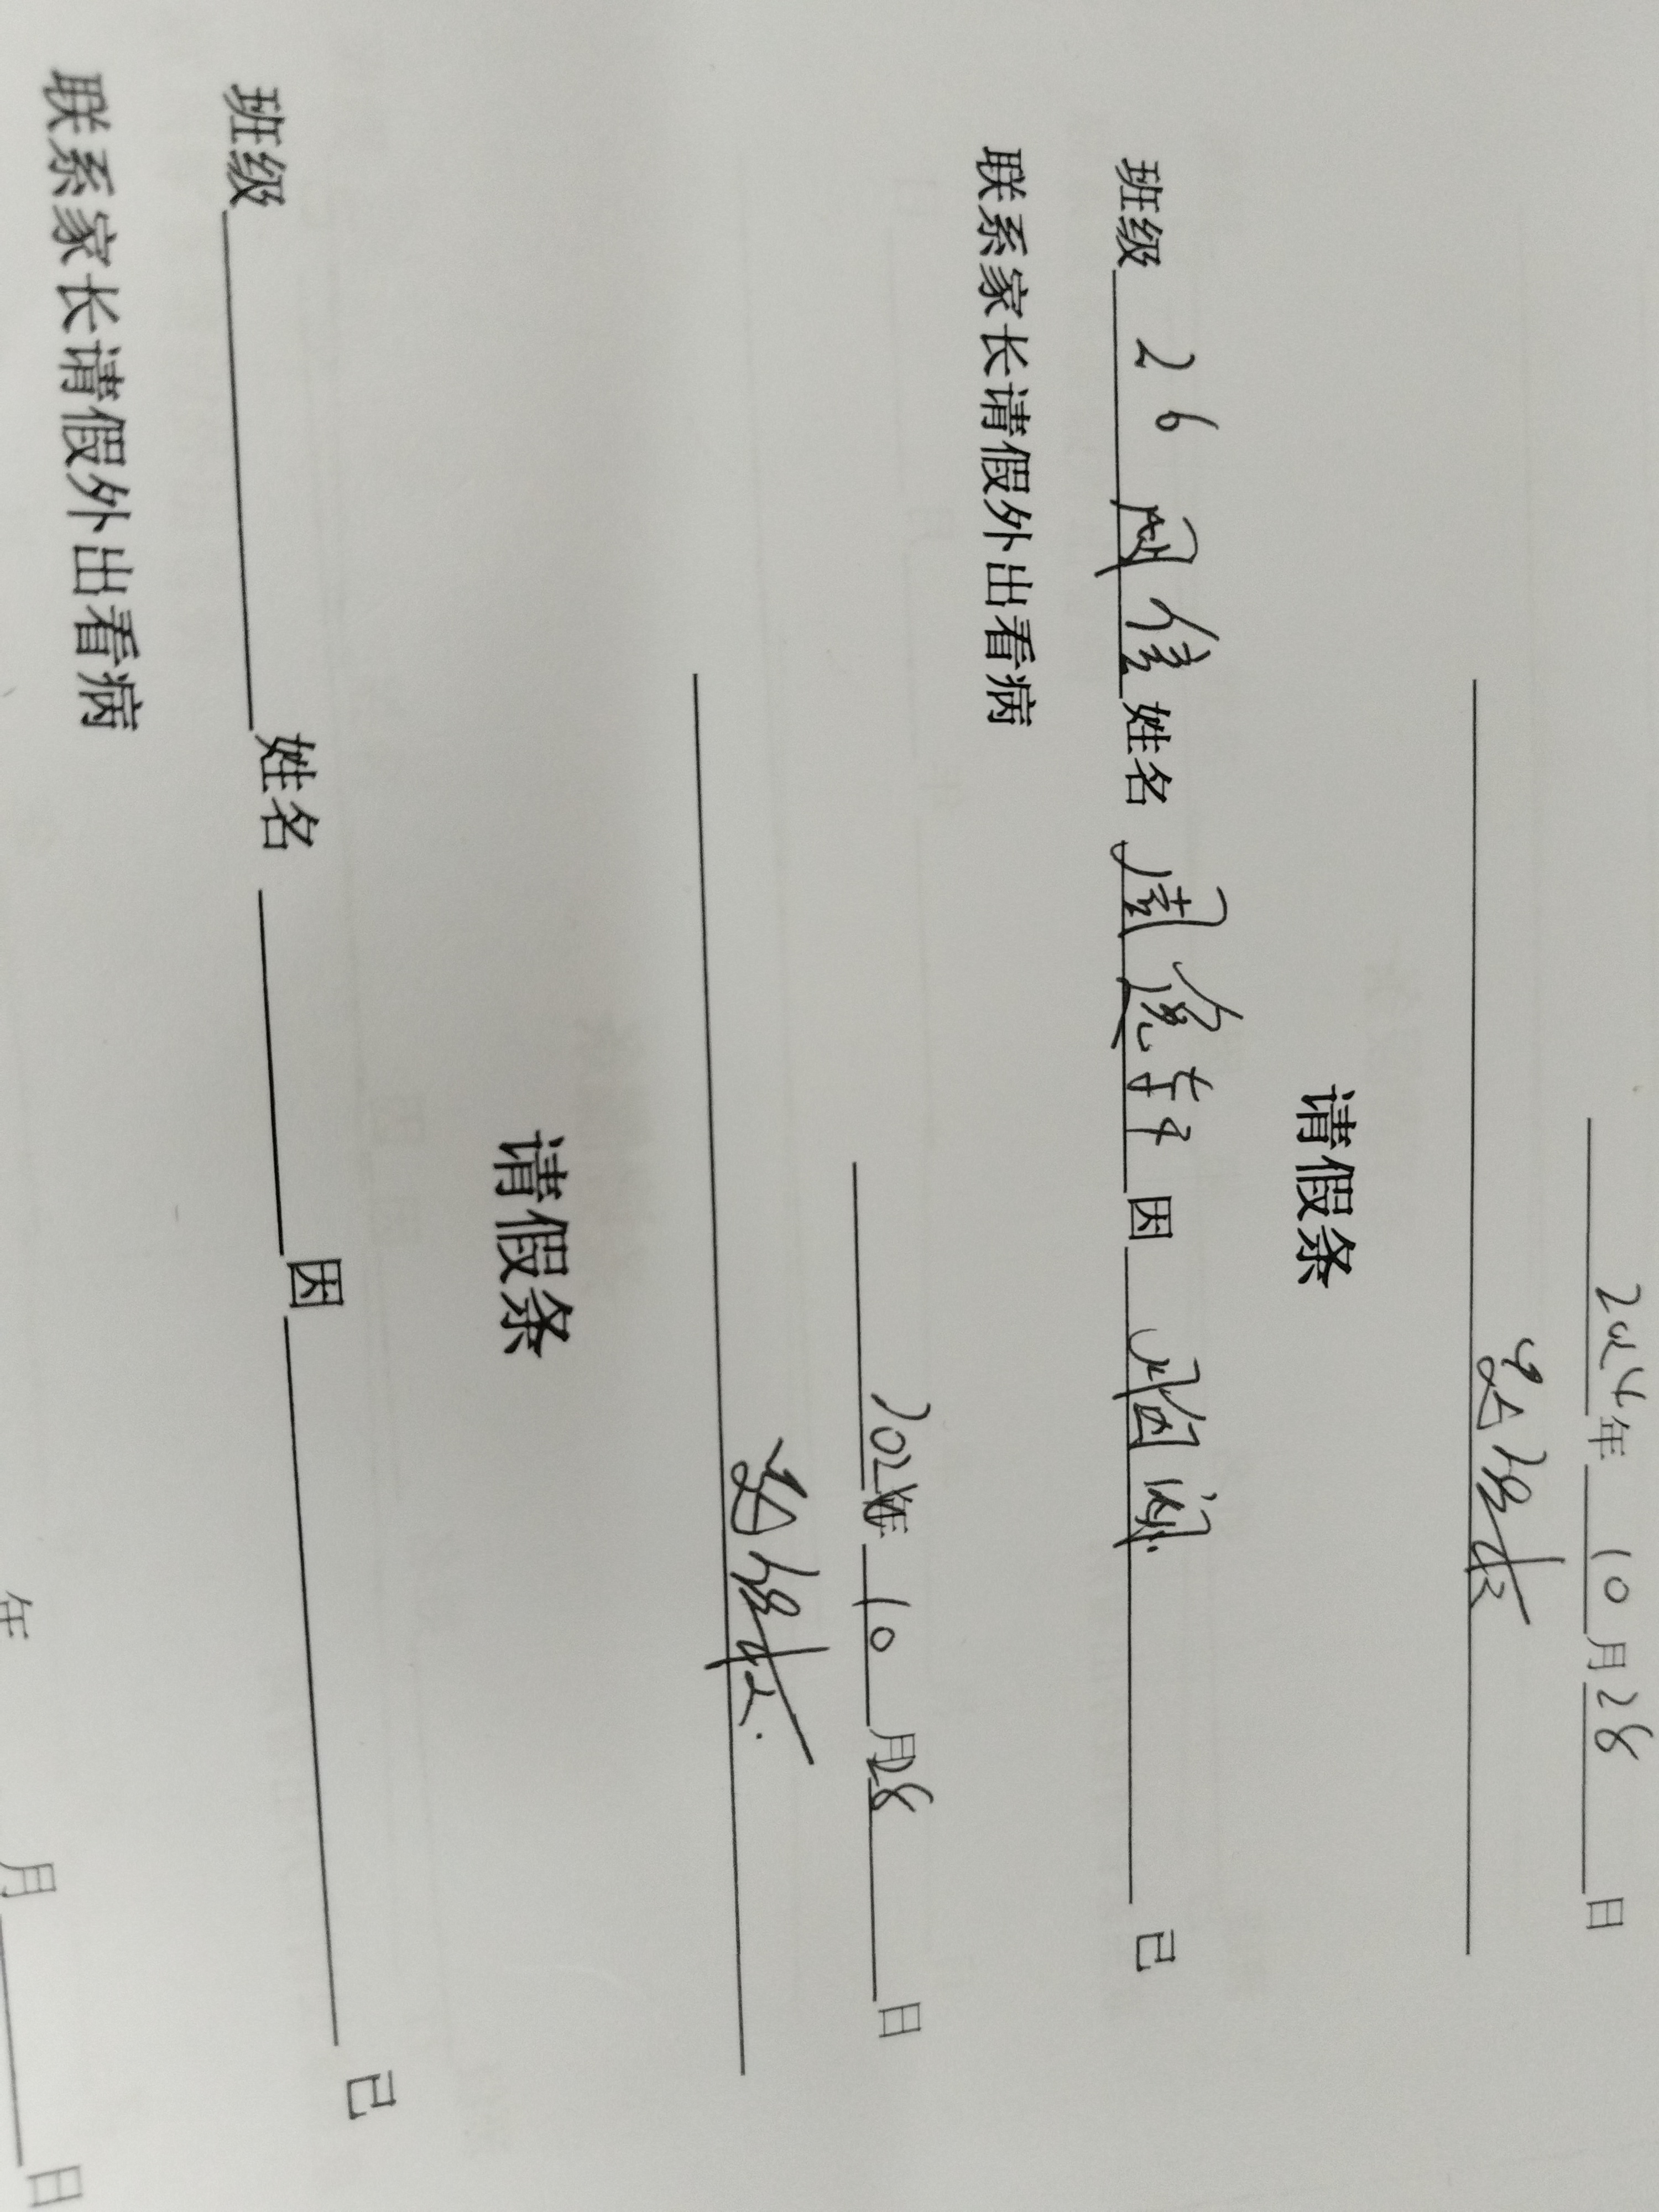 2024年 10 月 28 日
请假条
班级 26 网信 姓名 周逸轩 因 胸闷. 已
联系家长请假外出看病
2024年 10 月 28 日
请假条
班级 姓名 因 已
联系家长请假外出看病
年 月 日